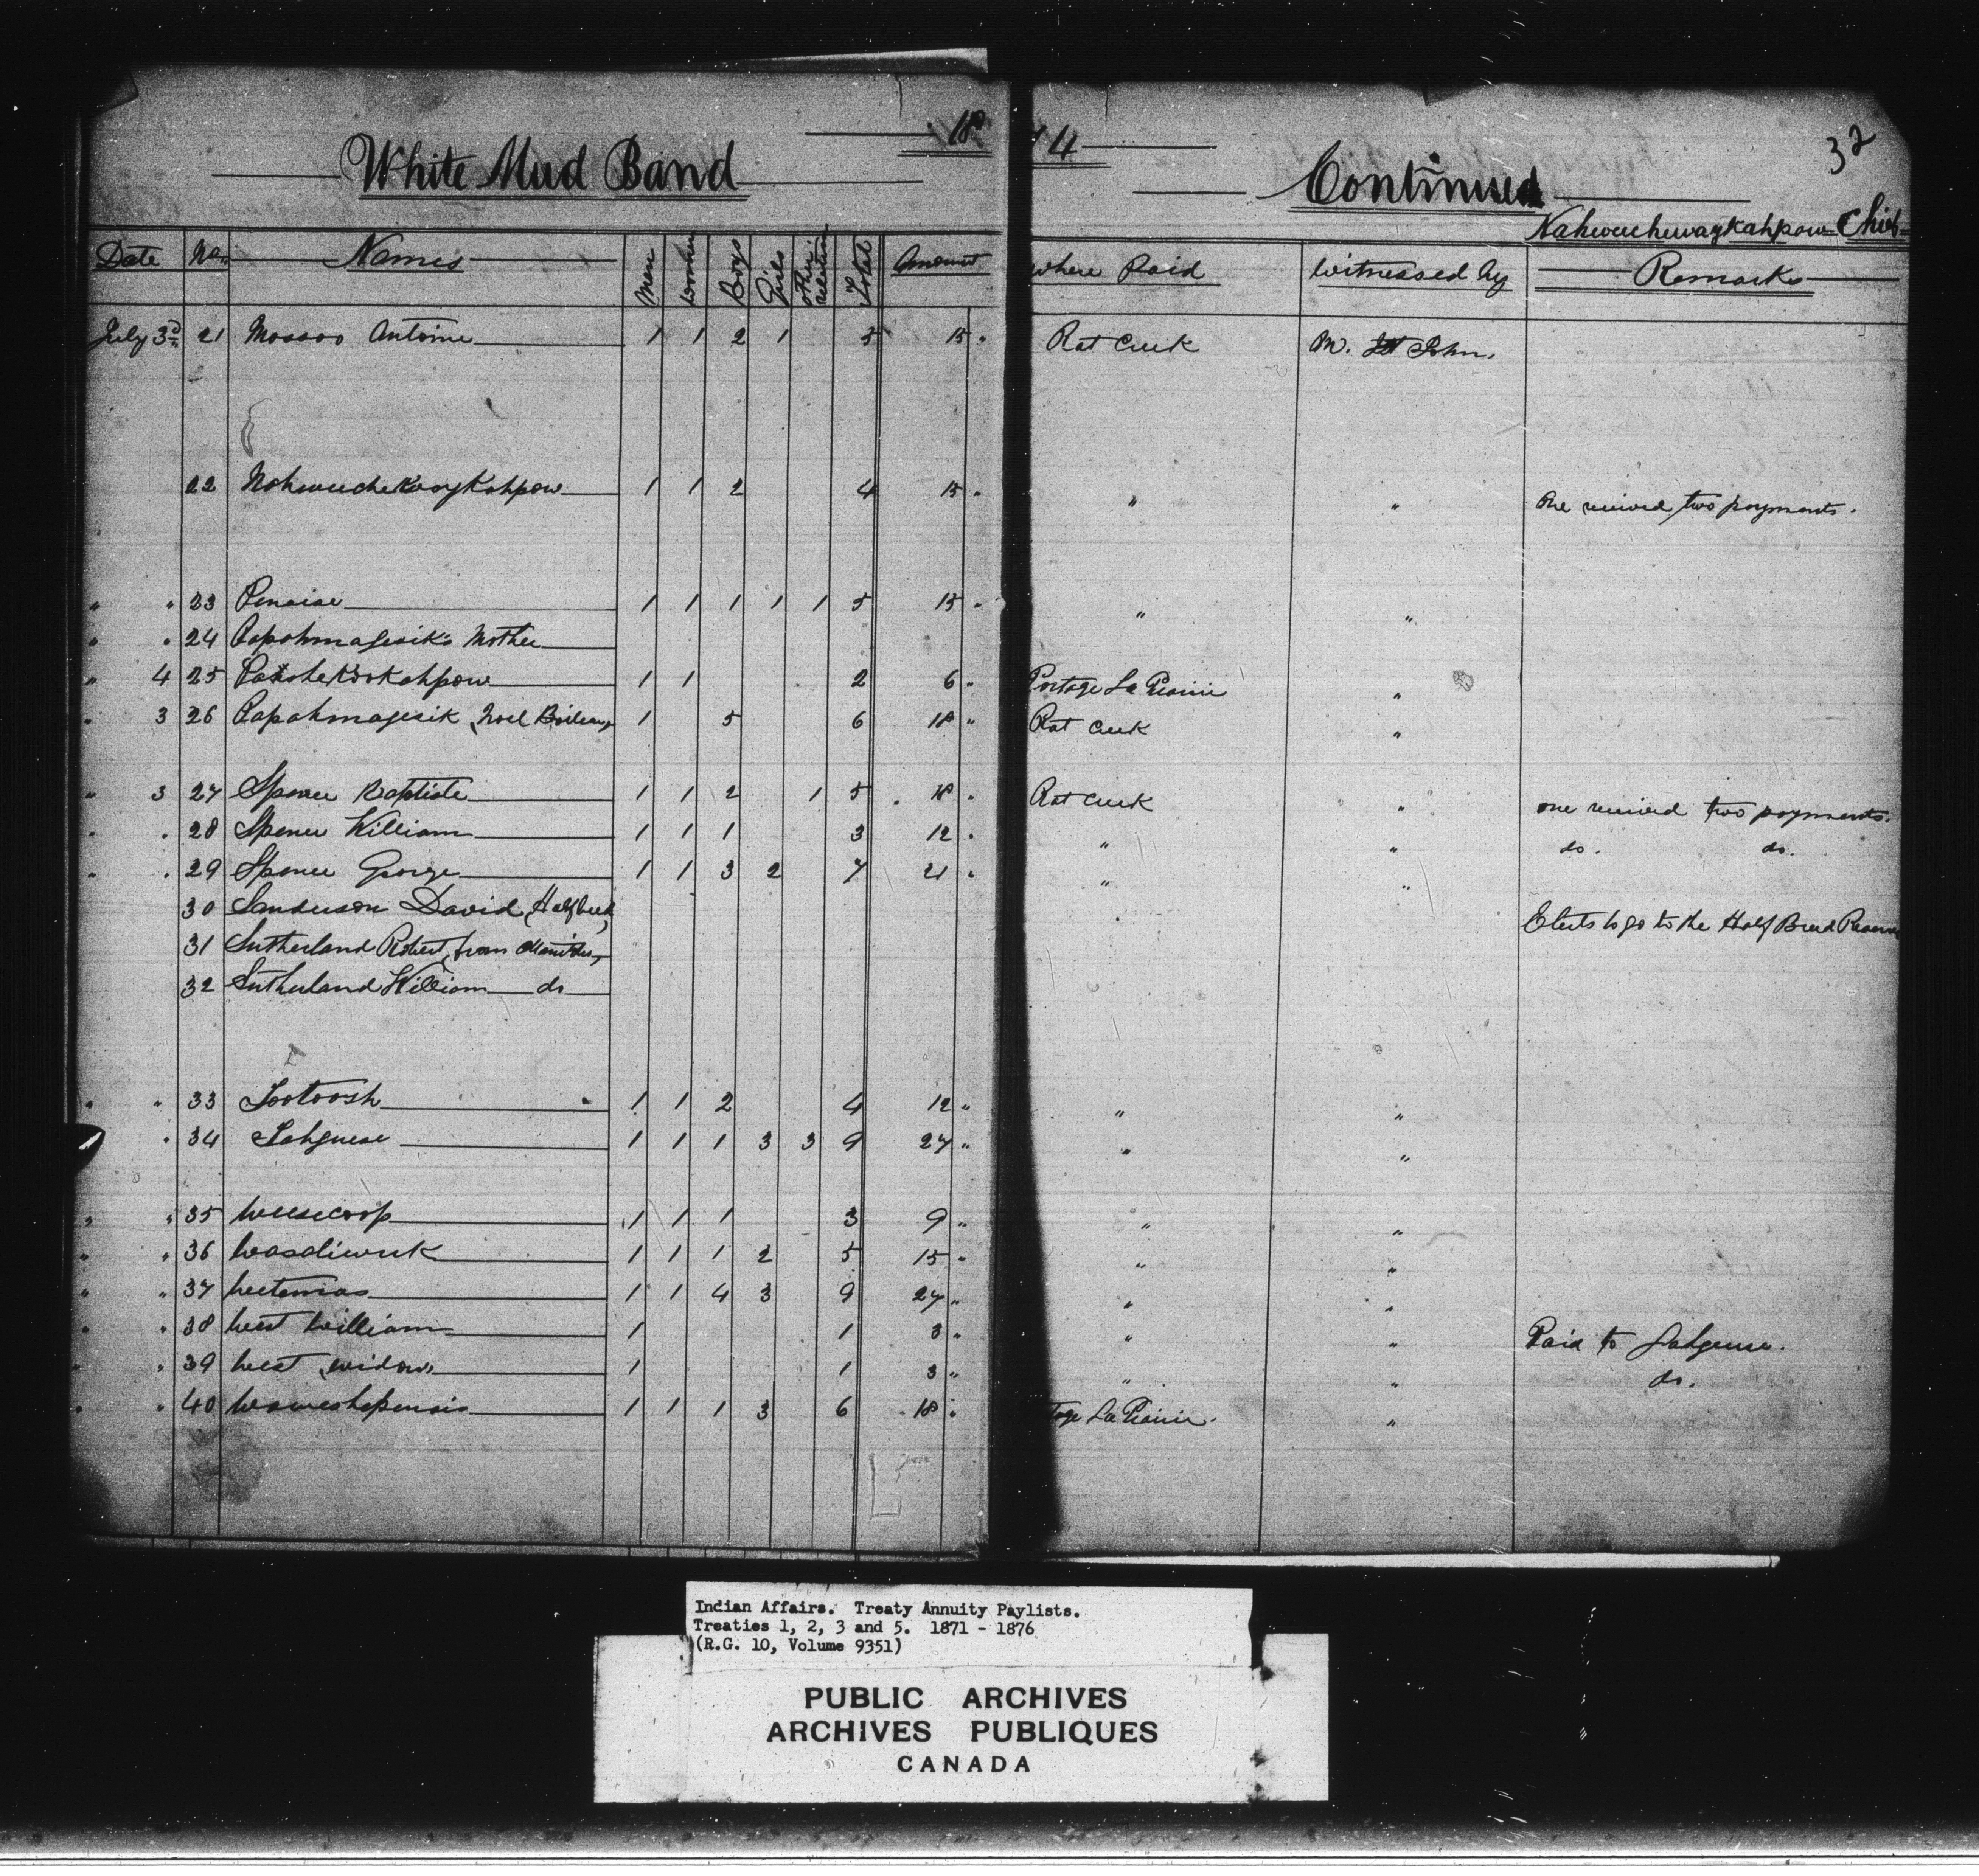 18 74
32
White Mud Band
Continued
Nahweechewaykahpow Chief
Date No. Names Men Women Boys Girls Other relations Total Amount Where Paid Witnessed by Remarks
July 3d 21 Mossoo Antoine 1 1 2 1 5 15 " Rat Creek M. St John.
22 Nahweechekwaykahpow 1 1 2 4 15 " " " One received two payments.
" " 23 Penaise 1 1 1 1 1 5 15 " " "
" " 24 Papahmagesik's Mother
" 4 25 Patshekookahpow 1 1 2 6 " Portage La Prairie "
" 3 26 Papahmagesik (Noel Boileau) 1 5 6 18 " Rat Creek "
" 3 27 Spence Baptiste 1 1 2 1 5 18 " Rat Creek " one received two payments.
" " 28 Spence William 1 1 1 3 12 " " " do. do.
" " 29 Spence George 1 1 3 2 7 21 " " "
30 Sanderson David (Halfbreed) Elects to go to the Half Breed Reserve
31 Sutherland Robert, from
32 Sutherland William do
" " 33 Tootoosh 1 1 2 4 12 " " "
" 34 Sahguese 1 1 1 3 3 9 27 " " "
" " 35 Weesecoop 1 1 1 3 9 " " "
" " 36 Wasaliwuk 1 1 1 2 5 15 " " "
" " 37 Weetemas 1 1 4 3 9 27 " " "
" " 38 West William 1 1 3 " " " Paid to Sahguese.
" " 39 West (widow) 1 1 3 " " " do.
" " 40 Waweshepenais 1 1 1 3 6 18 " tage La Prairie. "
Indian Affairs. Treaty Annuity Paylists.
Treaties 1, 2, 3 and 5. 1871 - 1876
(R.G. 10, Volume 9351)
PUBLIC ARCHIVES
ARCHIVES PUBLIQUES
CANADA